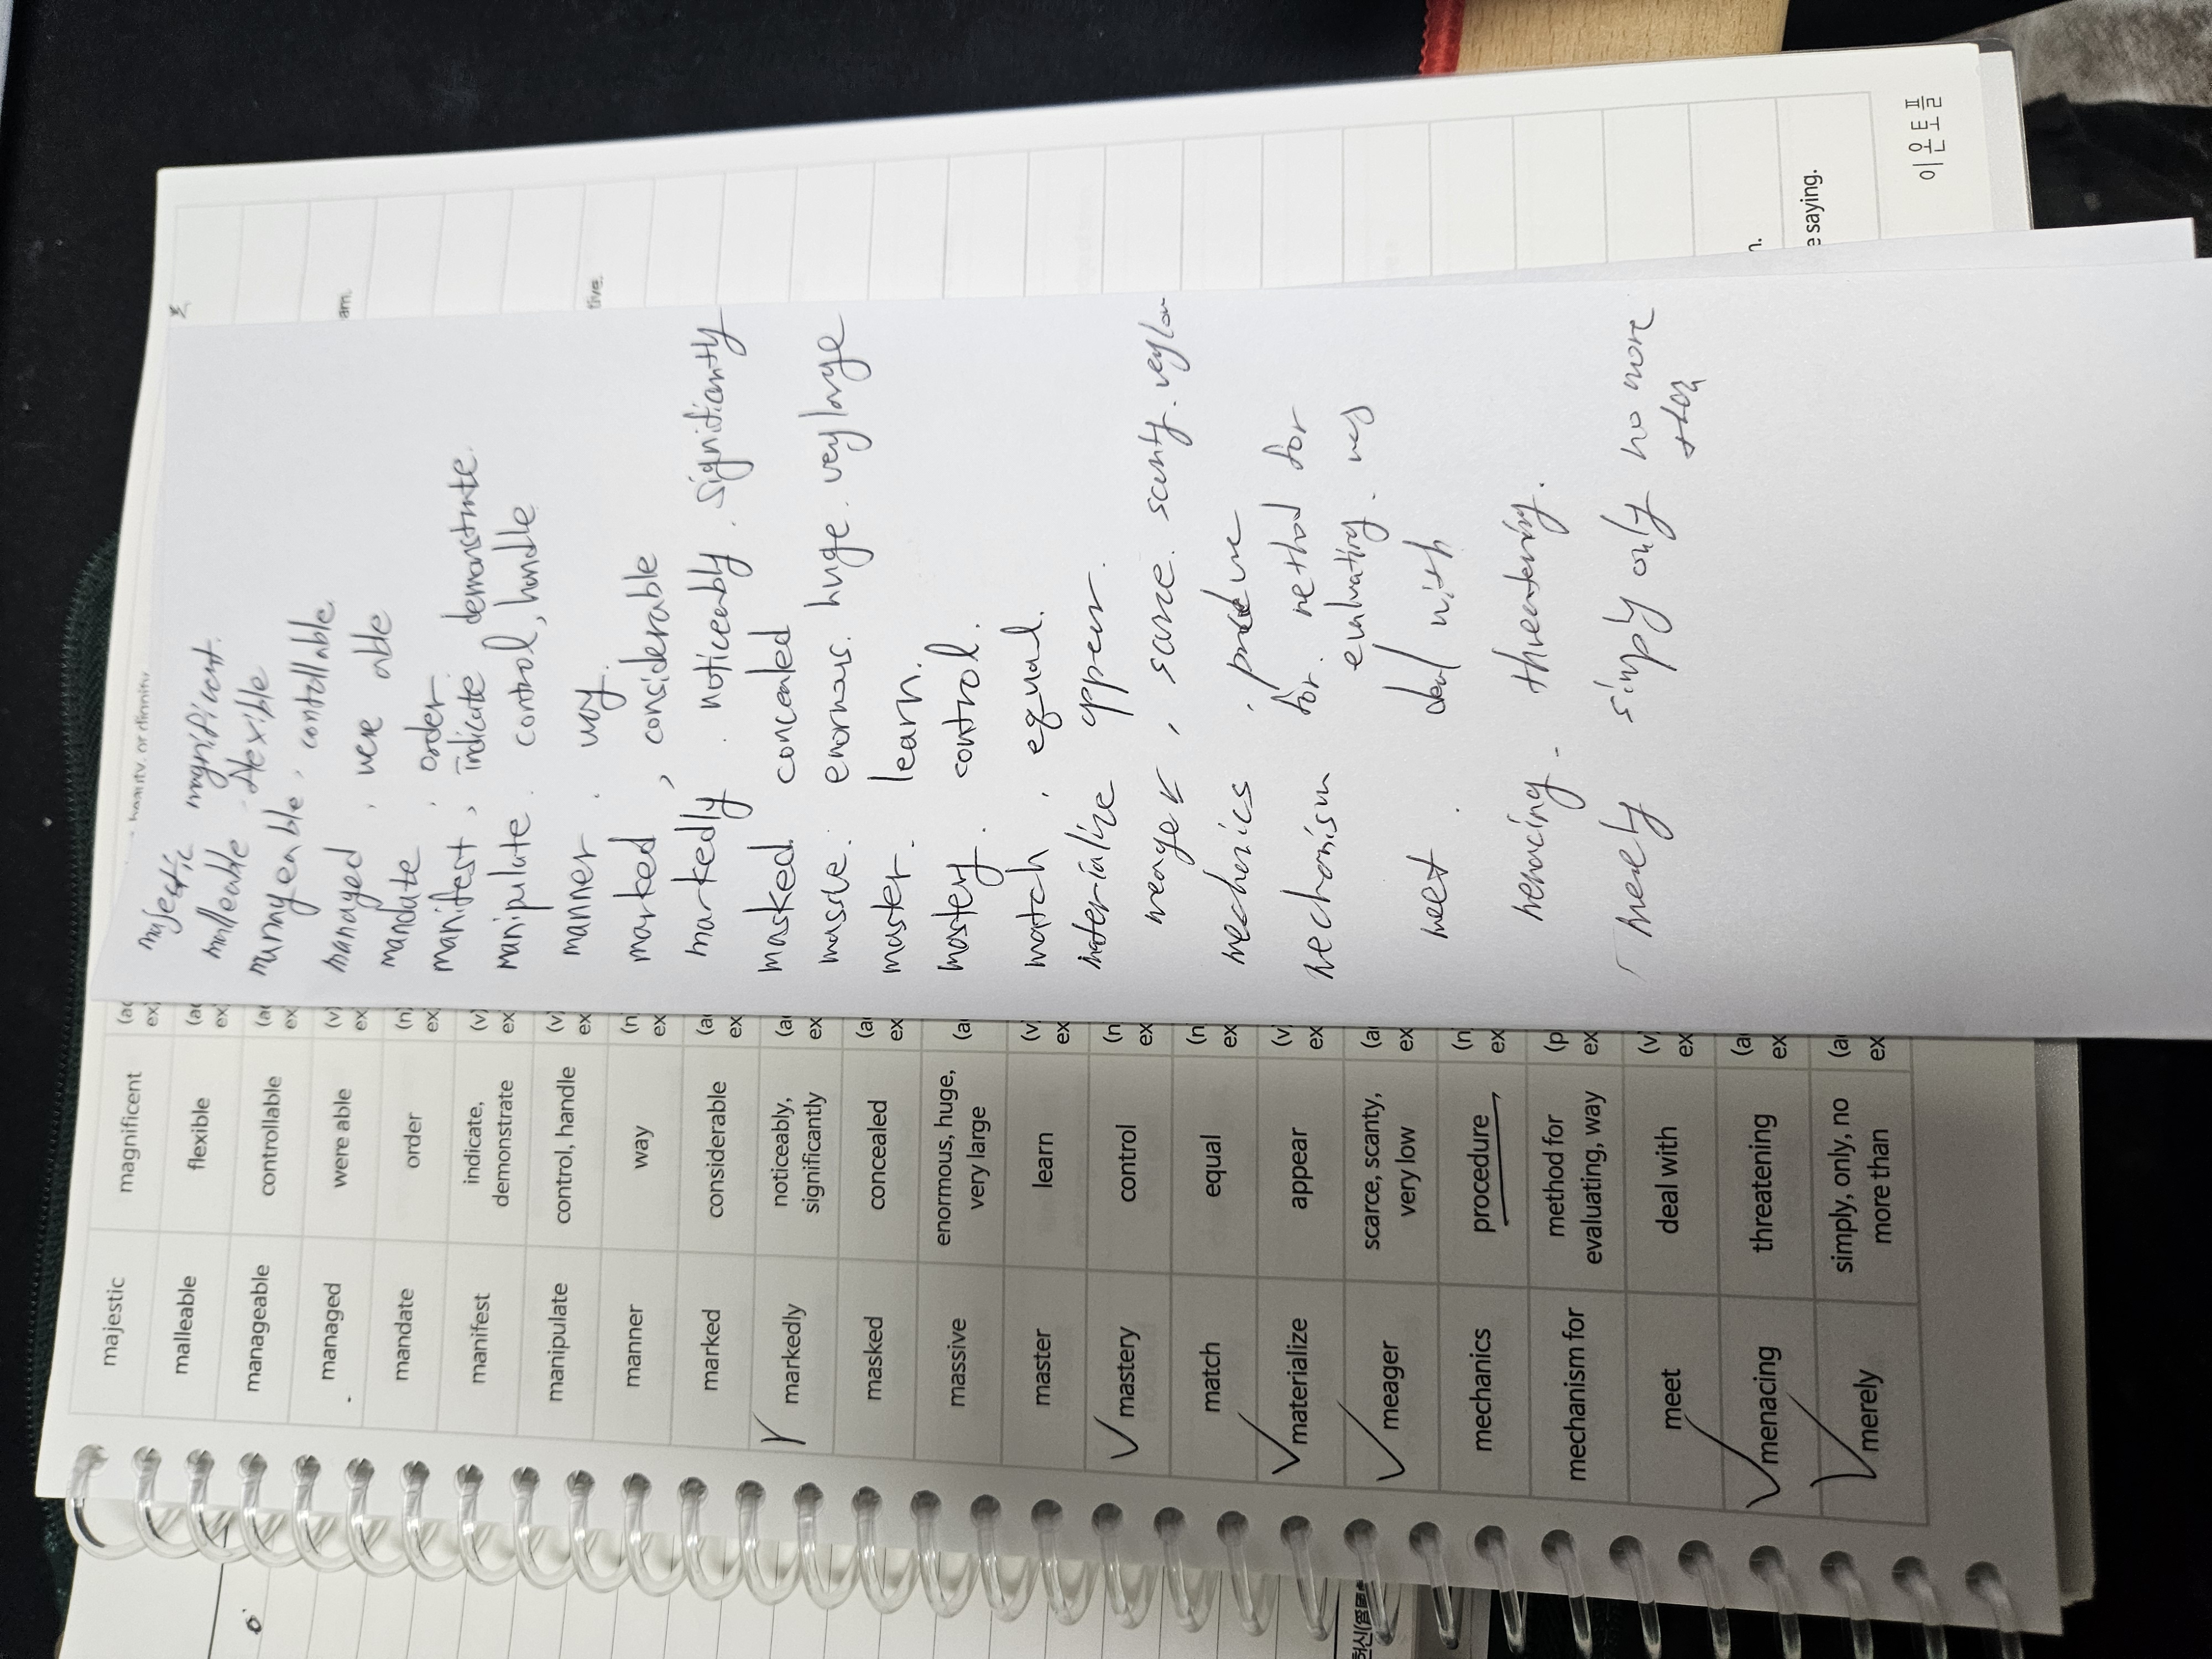 majestic magnificent (a
ex
malleable flexible (a
ex
manageable controllable (a
ex
managed were able (v)
ex
mandate order (n)
ex
manifest indicate, demonstrate (v)
ex
manipulate control, handle (v
ex
manner way (n
ex
marked considerable (a
ex
markedly noticeably, significantly (a
ex
masked concealed (a
ex
massive enormous, huge, very large (a
master learn (v
ex
mastery control (n
ex
match equal (n
ex
materialize appear (v
ex
meager scarce, scanty, very low (a
ex
mechanics procedure (n
ex
mechanism for method for evaluating, way (p
ex
meet deal with (v
ex
menacing threatening (a
ex
merely simply, only, no more than (a
ex
majestic magnificent.
malleable . flexible
manageable , controllable.
managed , were able
mandate , order.
manifest , indicate demonstrate.
manipulate . control, handle
manner . way.
marked , considerable
markedly . noticeably . significantly
masked concealed
massive . enormous. huge . very large
master . learn.
mastery . control.
match , equal.
materialize appear.
meager , scarce. scanty. very low
mechanics ,
mechanism for. method for
evaluating . way
meet . deal with
menacing - threatening.
merely simply only no more
than
am.
tive.
n.
e saying.
이윤토플